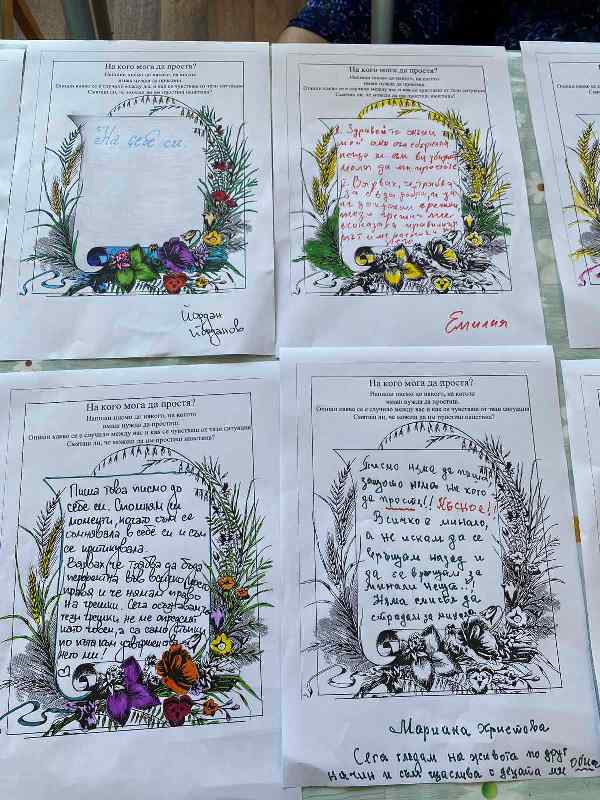 На кого мога да простя?
Напиши писмо до някого, на когото
имаш нужда да простиш.
Опиши какво се е случило между вас и как се чувстваш от тази ситуация
Смяташ ли, че можеш да им простиш наистина?
На себе си.
Йордан
Йорданов
На кого мога да простя?
Напиши писмо до някого, на когото
имаш нужда да простиш.
Опиши какво се е случило между вас и как се чувстваш от тази ситуация
Смяташ ли, че можеш да им простиш наистина?
Здравейте
мои ако съм сбъркала
нещо
моля да ми простите
да бъда добра и да
не допускам грешки
тези грешки ми
показаха правилният
път
Емилия
На кого мога да простя?
Напиши писмо до някого, на когото
имаш нужда да простиш.
Опиши какво се е случило между вас и как се чувстваш от тази ситуация
Смяташ ли, че можеш да им простиш наистина?
Пиша това писмо до
себе си. Спомням си
моменти, когато съм се
съмнявала в себе си и съм
се критикувала.
Вярвах, че трябва да бъда
перфектна във всичко, което
правя и че нямам право
на грешки. Сега осъзнавам, че
тези грешки не ме определят
като човек, а са само стъпки
по пътя към
ми!
На кого мога да простя?
Напиши писмо до някого, на когото
имаш нужда да простиш.
Опиши какво се е случило между вас и как се чувстваш от тази ситуация
Смяташ ли, че можеш да им простиш наистина?
Писмо няма да пиша,
защото няма на кого
да простя!! Късно е!
Всичко е минало,
а не искам да се
връщам назад и
да се връщам за
минали неща.
Няма смисъл да
страдам за минало
Мариана Христова
Сега гледам на живота по друг
начин и съм щастлива с децата ми